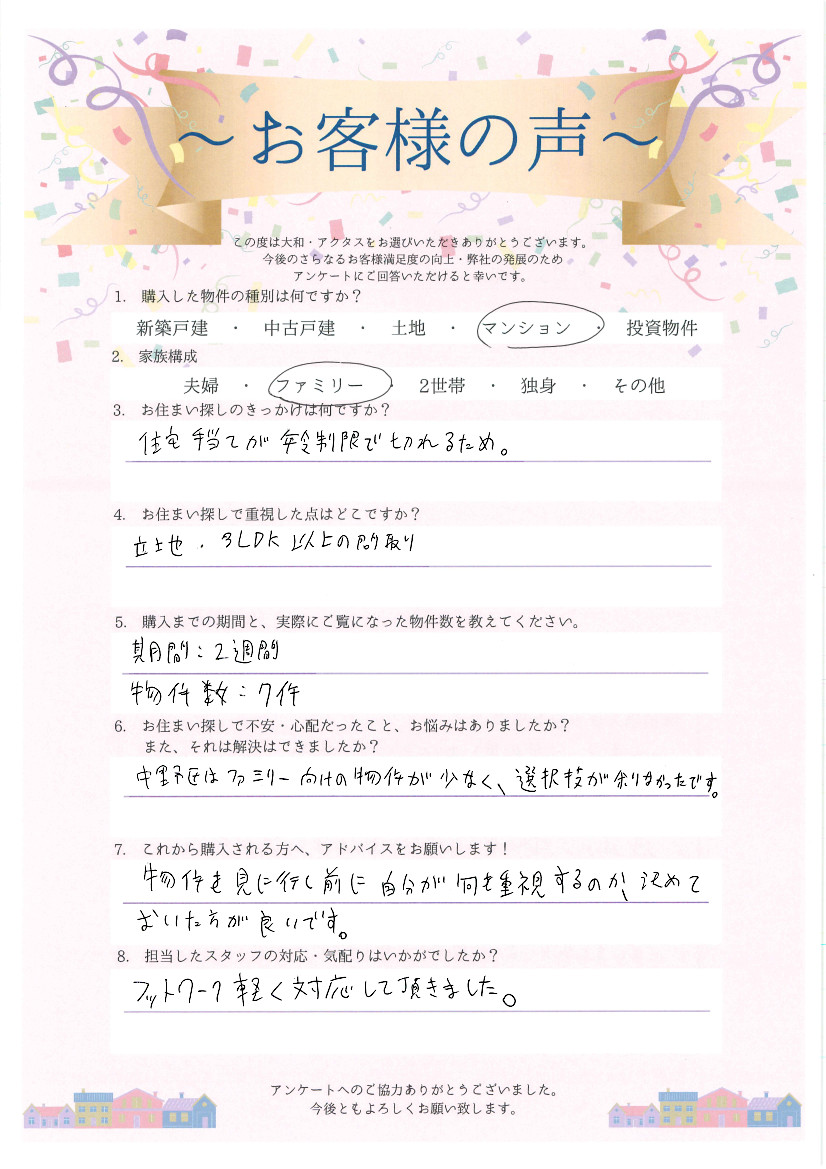 ～お客様の声～
この度は大和・アクタスをお選びいただきありがとうございます。
今後のさらなるお客様満足度の向上・弊社の発展のため
アンケートにご回答いただけると幸いです。
1. 購入した物件の種別は何ですか？
新築戸建 ・ 中古戸建 ・ 土地 ・ マンション ・ 投資物件
2. 家族構成
夫婦 ・ ファミリー ・ 2世帯 ・ 独身 ・ その他
3. お住まい探しのきっかけは何ですか？
住宅手当てが年令制限で切れるため。
4. お住まい探しで重視した点はどこですか？
立地・3LDK以上の間取り
5. 購入までの期間と、実際にご覧になった物件数を教えてください。
期間：2週間
物件数：7件
6. お住まい探しで不安・心配だったこと、お悩みはありましたか？
また、それは解決はできましたか？
中野区はファミリー向けの物件が少なく、選択技が余りなかったです。
7. これから購入される方へ、アドバイスをお願いします！
物件を見に行く前に自分が何を重視するのか、決めて
おいた方が良いです。
8. 担当したスタッフの対応・気配りはいかがでしたか？
フットワーク軽く対応して頂きました。
アンケートへのご協力ありがとうございました。
今後ともよろしくお願い致します。